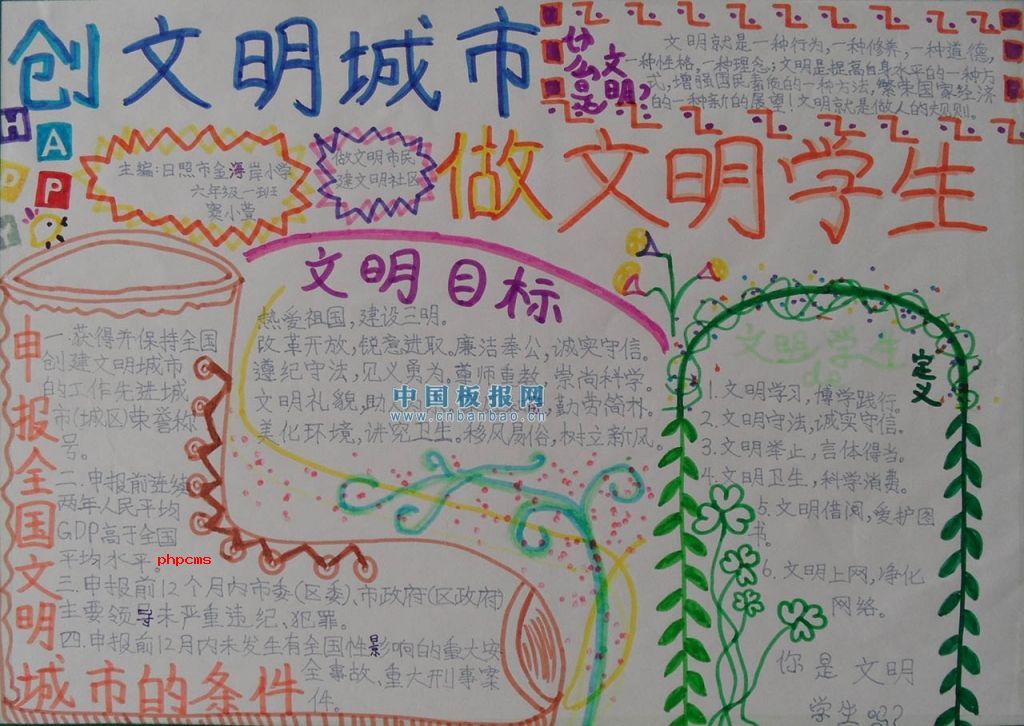 创文明城市
什么是文明?
文明就是一种行为,一种修养,一种道德,
一种性格,一种理念;文明是提高自身水平的一种方
式,增强国民素质的一种方法,繁荣国家经济
的一种新的展望!文明就是做人的规则。
H
A
P
P
主编:日照市金海岸小学
六年级一班
窦小萱
做文明市民
建文明社区
做文明学生
文明目标
热爱祖国,建设三明。
改革开放,锐意进取。廉洁奉公,诚实守信。
遵纪守法,见义勇为。尊师重教,崇尚科学。
文明礼貌,助 勤劳简朴。
美化环境,讲究卫生。移风易俗,树立新风。
中国板报网
www.cnbanbao.cn
申报全国文明
城市的条件
一.获得并保持全国
创建文明城市
的工作先进城
市(城区)荣誉称
号。
二.申报前连续
两年人民平均
GDP高于全国
平均水平。
phpcms
三.申报前12个月内市委(区委)、市政府(区政府)
主要领导未严重违纪、犯罪。
四.申报前12月内未发生有全国性影响的重大安
全事故,重大刑事案
件。
文明学生
de
定义
1.文明学习,博学践行
2.文明守法,诚实守信。
3.文明举止,言体得当。
4.文明卫生,科学消费。
5.文明借阅,爱护图
书。
6.文明上网,净化
网络。
你是文明
学生吗?